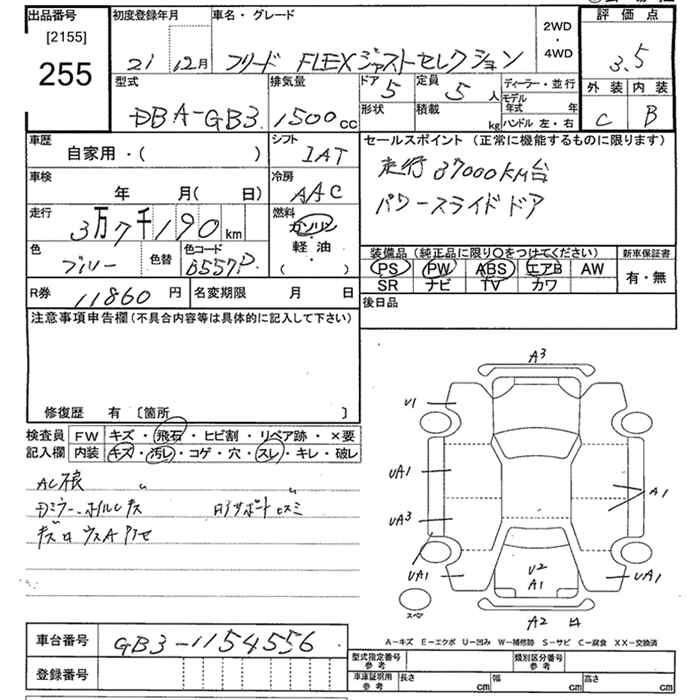 出品番号
[2155]
255
初度登録年月
21 12月
車名・グレード
フリード FLEX ジャストセレクション
2WD
・
4WD
評価点
3.5
外装 内装
C B
型式
DBA-GB3
排気量
1500cc
ドア
5
定員
5人
形状
積載
kg
ディーラー・並行
モデル年式 年
ハンドル 左・右
車歴
自家用・( )
シフト
IAT
車検
年 月( 日)
冷房
AAC
走行
3万7千190km
燃料
ガソリン
・
軽油
( ・ )
色
ブルー
色替
色コード
B557P
R券 11860円
名変期限 月 日
セールスポイント(正常に機能するものに限ります)
走行 37000KM台
パワースライドドア
装備品(純正品に限り○をつけてください)
PS PW ABS エアB AW
SR ナビ TV カワ
新車保証書
有・無
後日品
注意事項申告欄(不具合内容等は具体的に記入して下さい)
修復歴 有 〔箇所 〕
検査員記入欄
FW キズ・飛石・ヒビ割・リペア跡・×要
内装 キズ・汚レ・コゲ・穴・スレ・キレ・破レ
A3
U1
UA1
UA3
UA1
A1
UA1
U2
A1
A2
スペア
A-キズ E-エクボ U-凹み W-補修跡 S-サビ C-腐食 XX-交換済
車台番号 GB3-1154556
登録番号
型式指定番号 参考
類別区分番号 参考
車庫証明用 参考
長さ cm
幅 cm
高さ cm